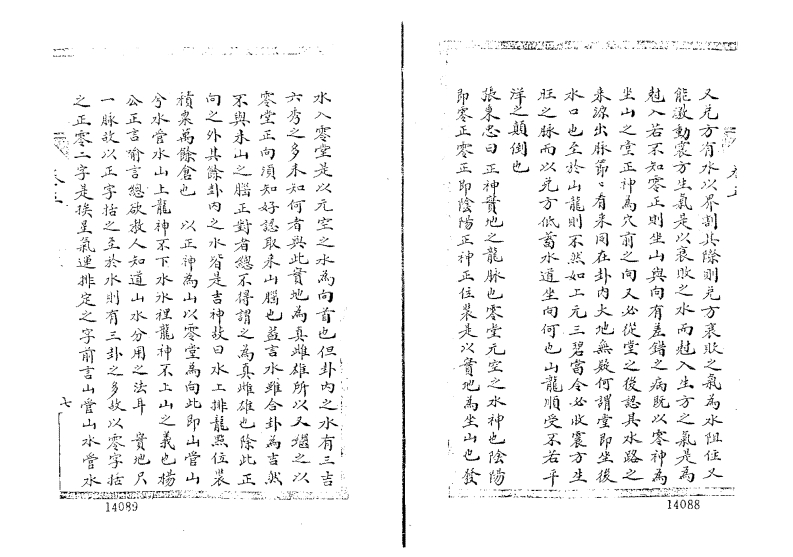 又兌方有水以界割其際則兌方衰敗之氣為水阻住又
能激動震方生氣是以衰敗之水而尅入生方之氣是為
尅入若不知零正則坐山與向有差錯之病既以零神為
坐山之堂正神為穴前之向又必從堂之後認其水路之
來源出脉節〻看来同在卦内大地無疑何謂堂即坐後
水口也至於山龍則不然如上元三碧當令必收震方生
旺之脉而以兌方低蓄水道坐向何也山龍順受不若平
洋之顛倒也
張東忠曰正神實地之龍脉也零堂元空之水神也陰陽
即零正零正即陰陽正神正位裝是以實地為坐山也發
卷五
14088
水入零堂是以元空之水為向首也但卦内之水有三吉
六秀之多未知何者與此實地為真雌雄所以又繼之以
零堂正向須知好認取来山腦也葢言水雖合卦為吉然
不與来山之腦正對者總不得謂之為真雌雄也除此正
向之外其餘卦内之水皆是吉神故曰水上排龍㸃位裝
積粟萬餘倉也　以正神為山以零堂為向此即山管山
兮水管水山上龍神不下水水裡龍神不上山之義也楊
公正言喻言總欲教人知道山水分用之法耳　實地只
一脉故以正字括之至於水則有三卦之多故以零字括
之正零二字是挨星氣運排定之字前言山管山水管水
七
14089